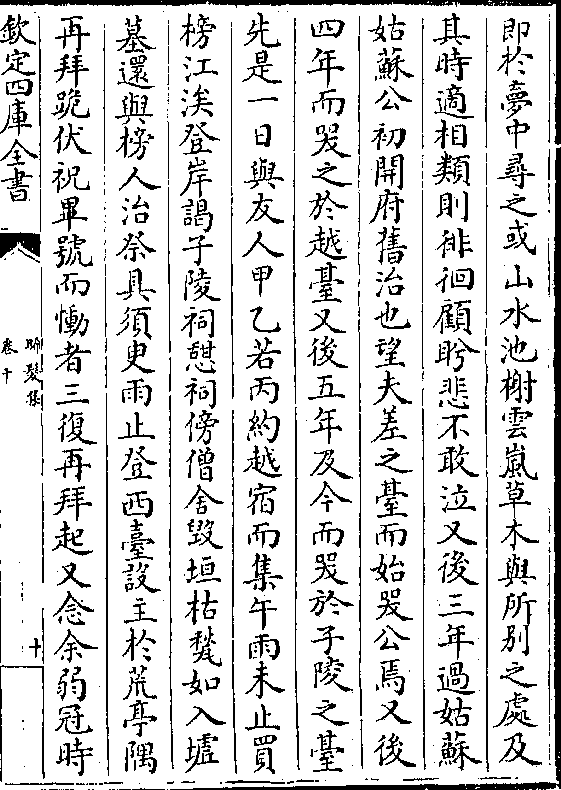 即於夢中尋之或山水池榭雲嵐草木與所别之處及
其時適相類則徘徊顧盻悲不敢泣又後三年過姑蘇
姑蘇公初開府舊治也望夫差之臺而始哭公焉又後
四年而哭之於越臺又後五年及今而哭於子陵之臺
先是一日與友人甲乙若丙約越宿而集午雨未止買
榜江涘登岸謁子陵祠憇祠傍僧舍毁垣枯甃如入墟
墓還與榜人治祭具須臾雨止登西臺設主於荒亭隅
再拜跪伏祝畢號而慟者三復再拜起又念余弱冠時
欽定四庫全書
晞髮集
卷十
十